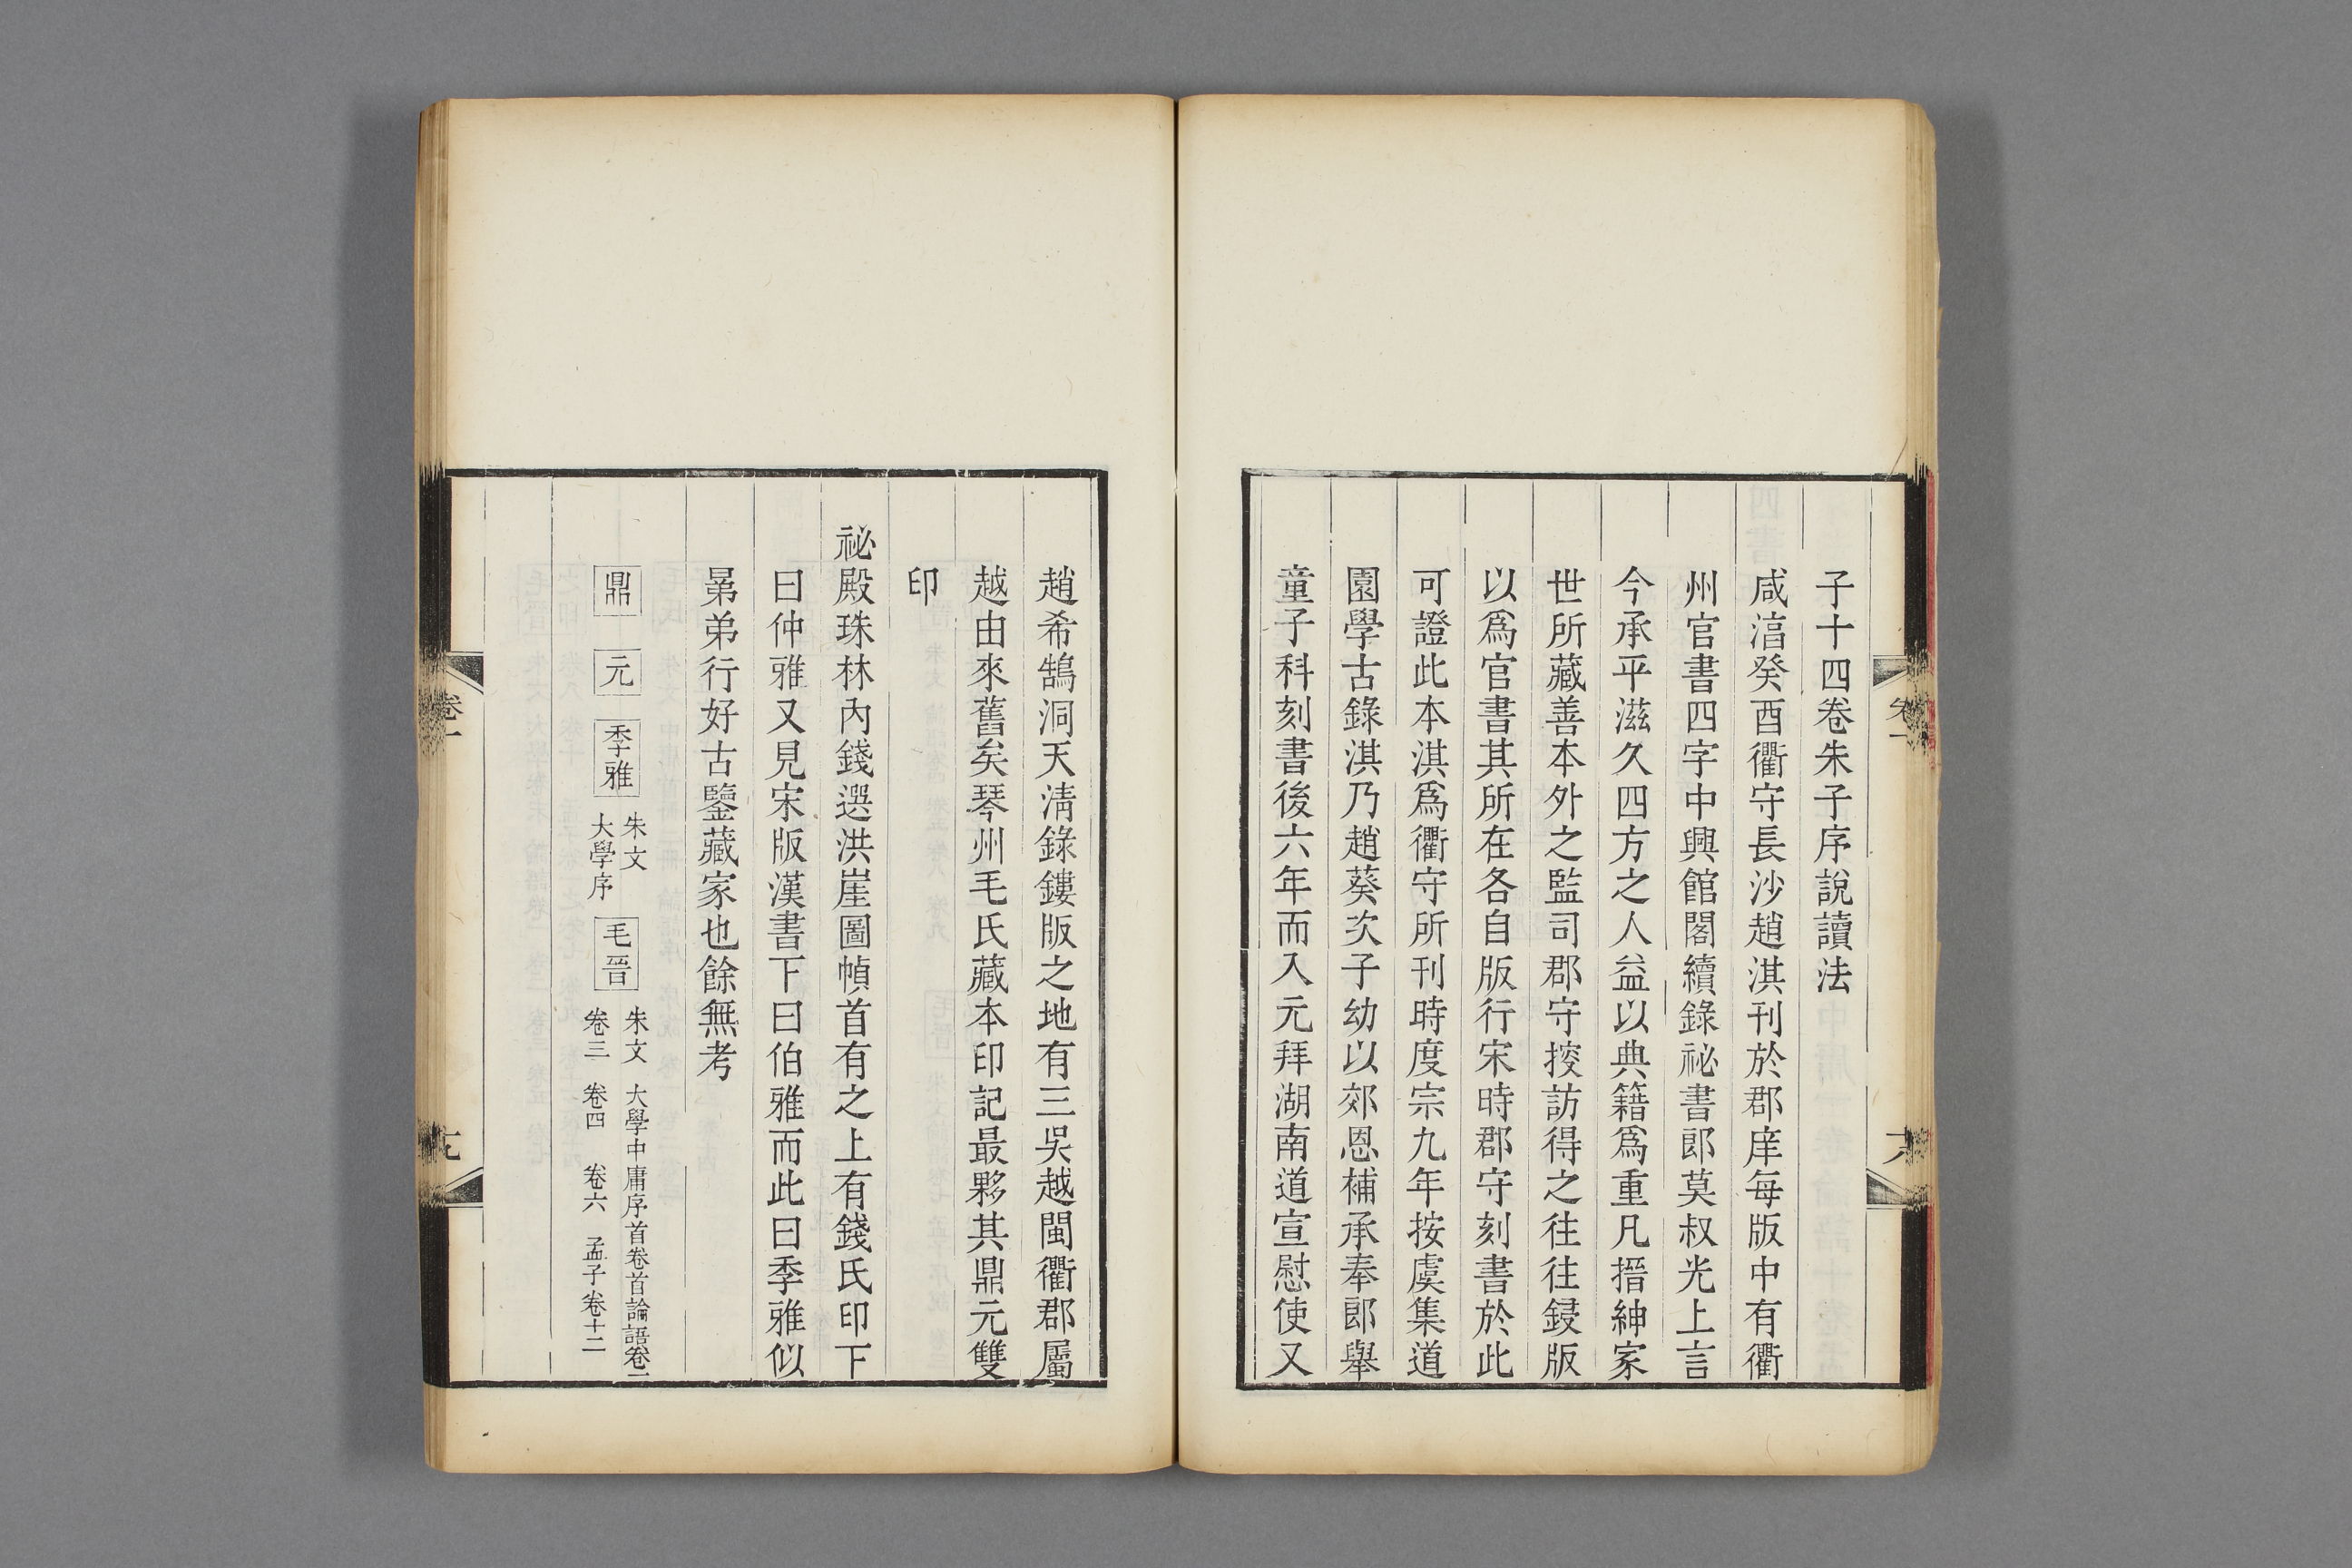 子十四卷朱子序說讀法
咸湻癸酉衢守長沙趙淇刊於郡庠每版中有衢
州官書四字中興館閣續錄祕書郎莫叔光上言
今承平滋久四方之人益以典籍爲重凡搢紳家
世所藏善本外之監司郡守搜訪得之往往鋟版
以爲官書其所在各自版行宋時郡守刻書於此
可證此本淇爲衢守所刊時度宗九年按虞集道
園學古錄淇乃趙葵次子幼以郊恩補承奉郎舉
童子科刻書後六年而入元拜湖南道宣慰使又
趙希鵠洞天清錄鏤版之地有三吳越閩衢郡屬
越由來舊矣琴州毛氏藏本印記最夥其鼎元雙
印
祕殿珠林內錢選洪崖圖幀首有之上有錢氏印下
曰仲雅又見宋版漢書下曰伯雅而此曰季雅似
㬪弟行好古鑒藏家也餘無考
鼎 元 季雅 朱文大學序 毛晉 朱文 大學中庸序首卷首論語卷一卷三 卷四 卷六 孟子卷十二
卷一